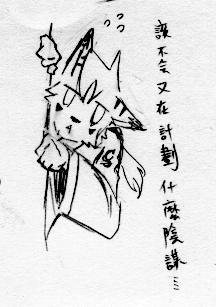 該不会又在計劃什麼陰謀…